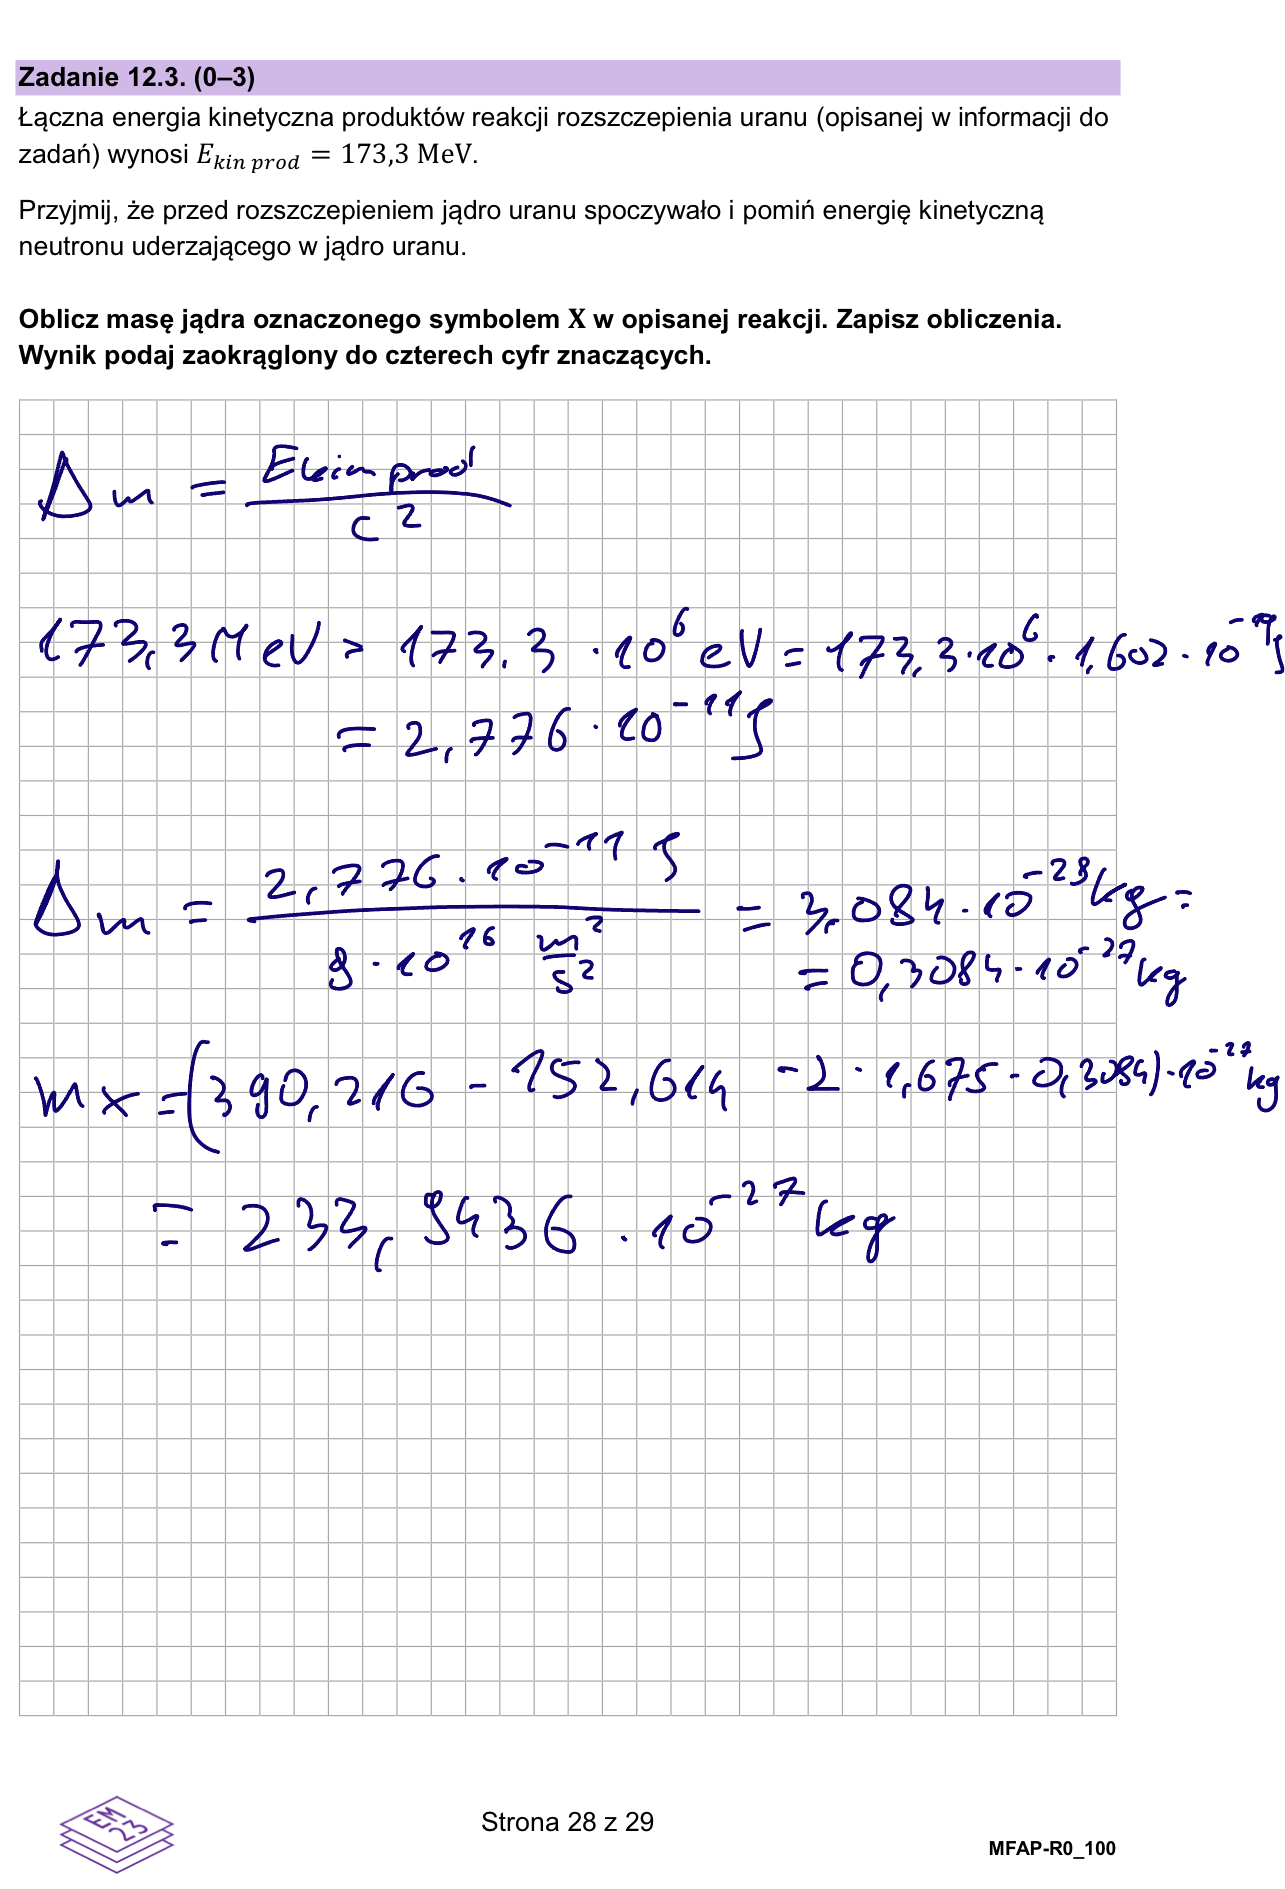 Zadanie 12.3. (0–3)
Łączna energia kinetyczna produktów reakcji rozszczepienia uranu (opisanej w informacji do
zadań) wynosi E_{kin prod} = 173,3 MeV.
Przyjmij, że przed rozszczepieniem jądro uranu spoczywało i pomiń energię kinetyczną
neutronu uderzającego w jądro uranu.
Oblicz masę jądra oznaczonego symbolem X w opisanej reakcji. Zapisz obliczenia.
Wynik podaj zaokrąglony do czterech cyfr znaczących.
Δm = Ekin prod / c²
173,3 MeV = 173,3 · 10⁶ eV = 173,3 · 10⁶ · 1,602 · 10⁻¹⁹ J
= 2,776 · 10⁻¹¹ J
Δm = 2,776 · 10⁻¹¹ J / 9 · 10¹⁶ m²/s² = 3,084 · 10⁻²⁸ kg =
= 0,3084 · 10⁻²⁷ kg
mx = (390,216 - 152,614 - 2 · 1,675 - 0,3084) · 10⁻²⁷ kg
= 233,9436 · 10⁻²⁷ kg
EM
23
Strona 28 z 29
MFAP-R0_100